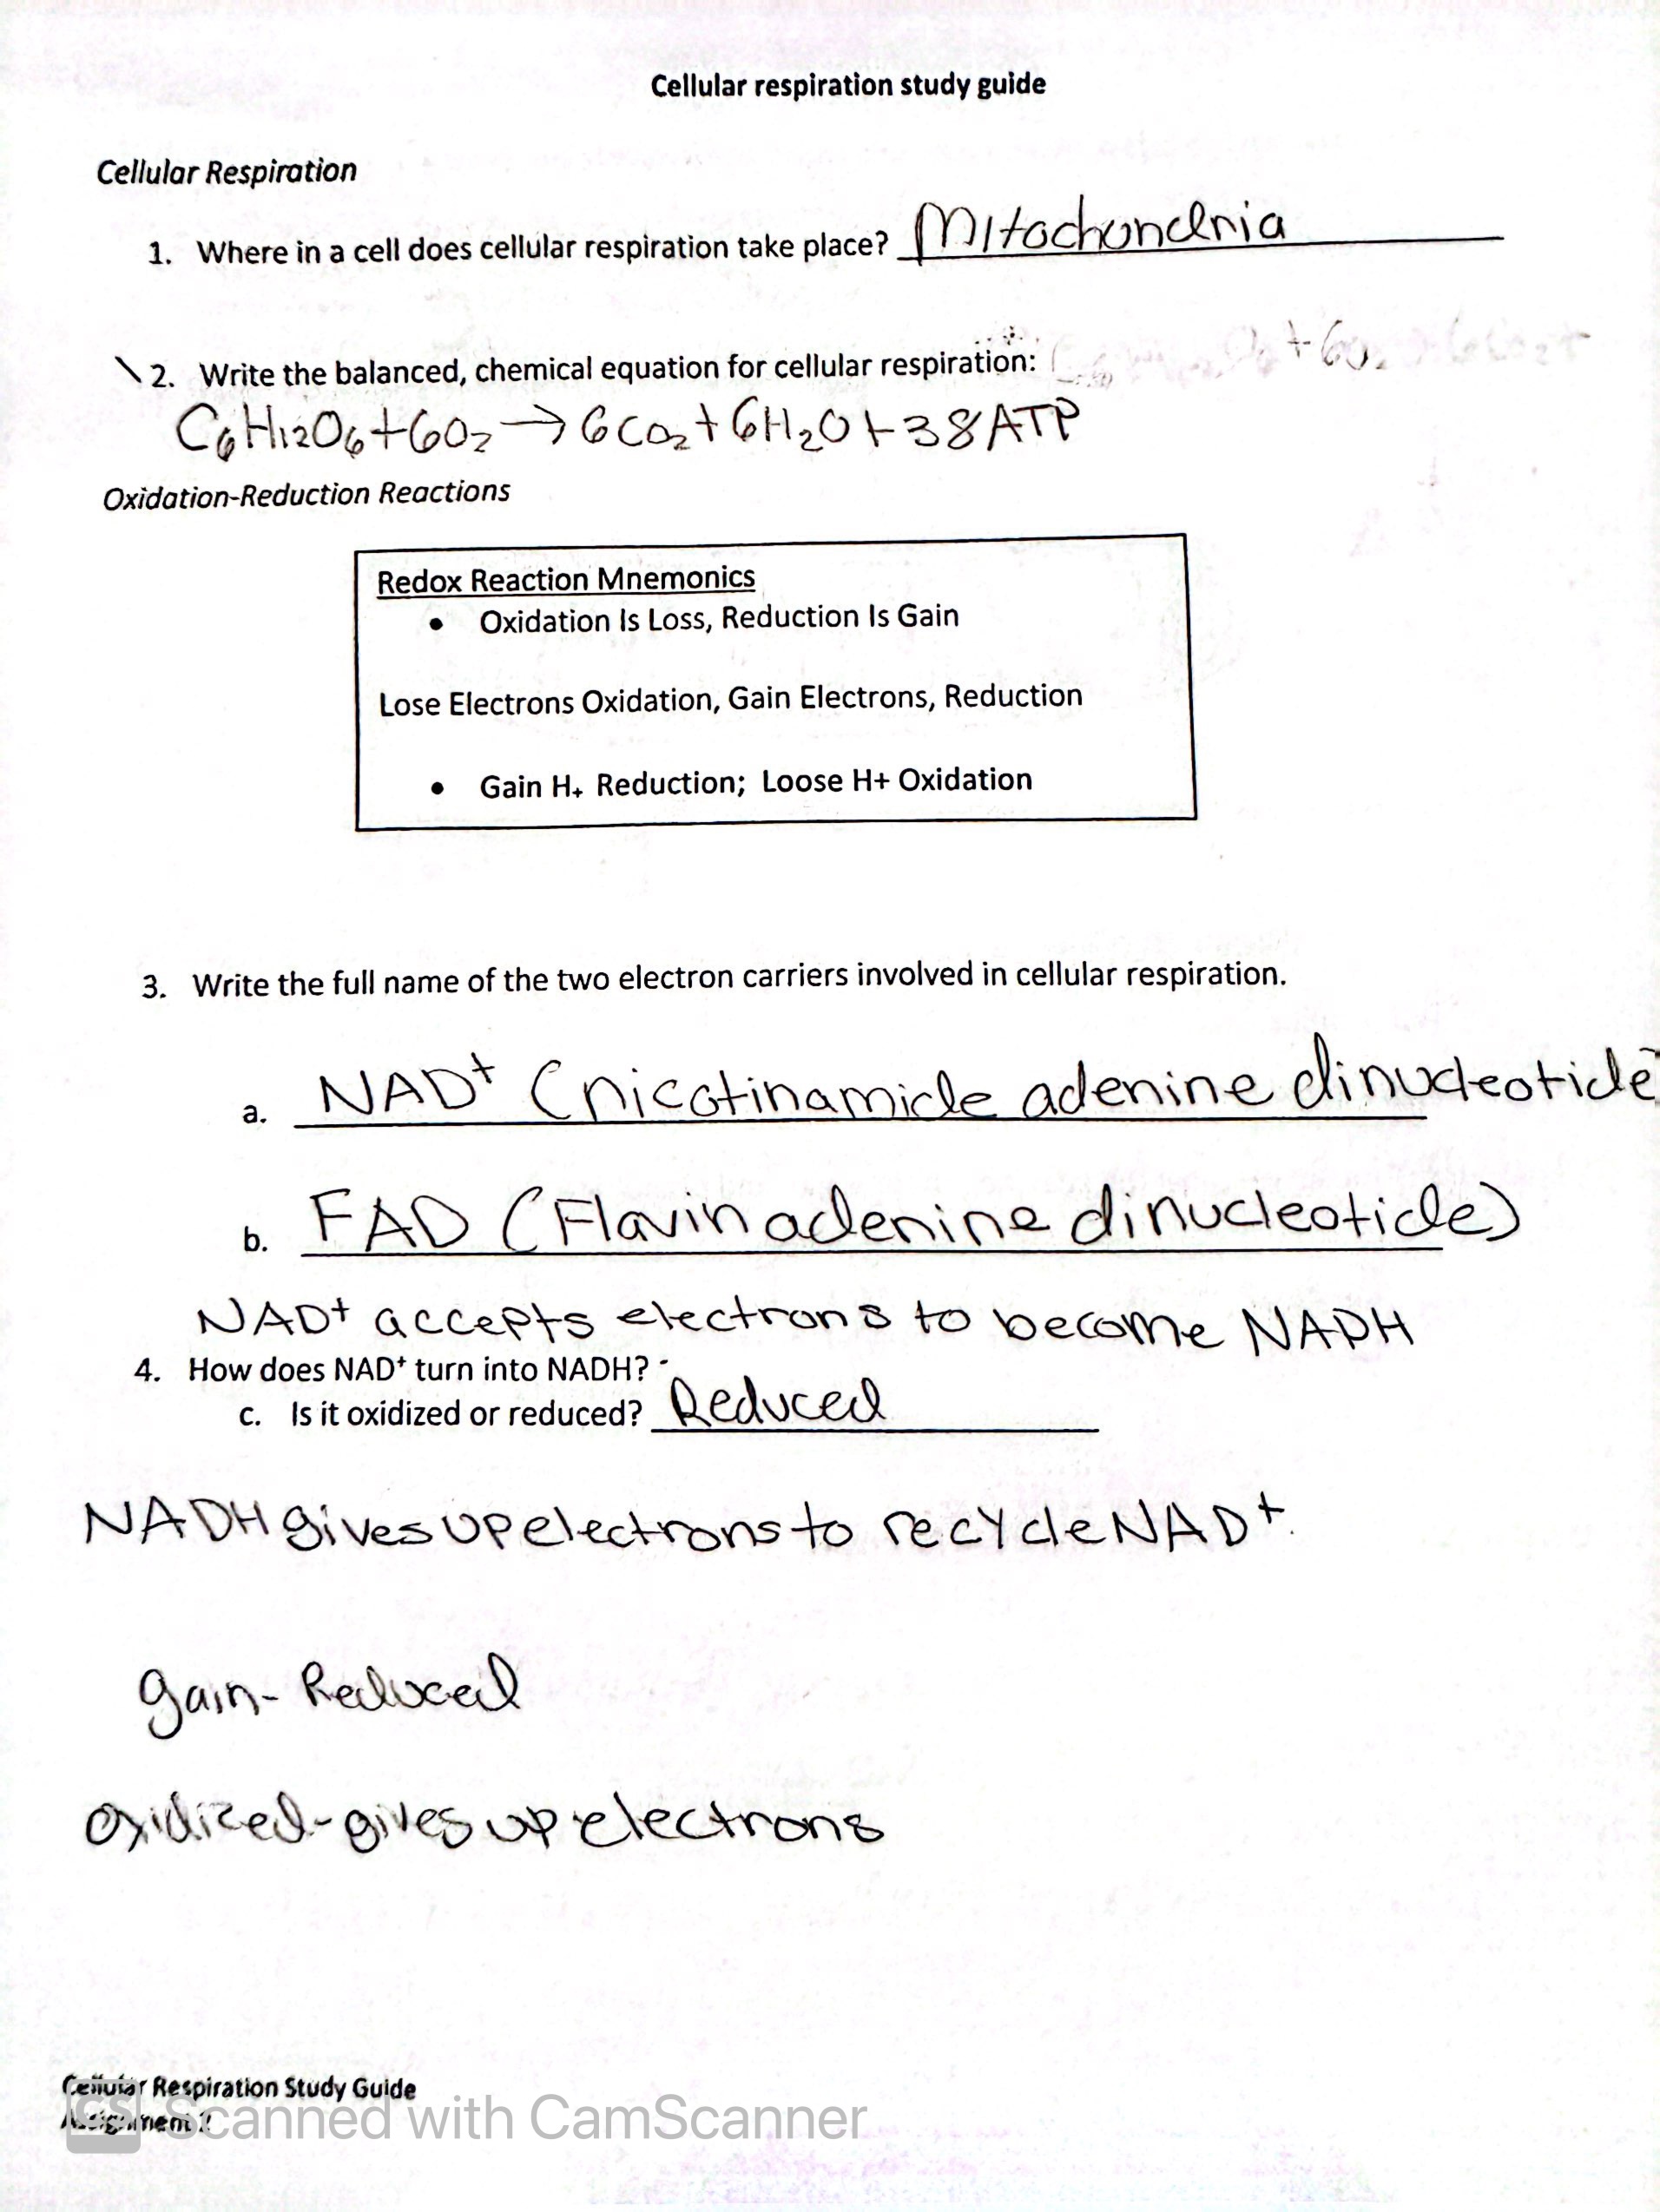 Cellular respiration study guide
Cellular Respiration
1. Where in a cell does cellular respiration take place? Mitochondria
2. Write the balanced, chemical equation for cellular respiration: + 6O₂
C₆H₁₂O₆+6O₂ → 6CO₂+6H₂O+38ATP
Oxidation-Reduction Reactions
Redox Reaction Mnemonics
• Oxidation Is Loss, Reduction Is Gain
Lose Electrons Oxidation, Gain Electrons, Reduction
• Gain H₊ Reduction; Loose H+ Oxidation
3. Write the full name of the two electron carriers involved in cellular respiration.
a. NAD⁺ (nicotinamide adenine dinucleotide)
b. FAD (Flavin adenine dinucleotide)
NAD+ accepts electrons to become NADH
4. How does NAD⁺ turn into NADH? -
c. Is it oxidized or reduced? Reduced
NADH gives up electrons to recycle NAD+.
gain- Reduced
Oxidized-gives up electrons
Cellular Respiration Study Guide
Assignment 2
CS Scanned with CamScanner